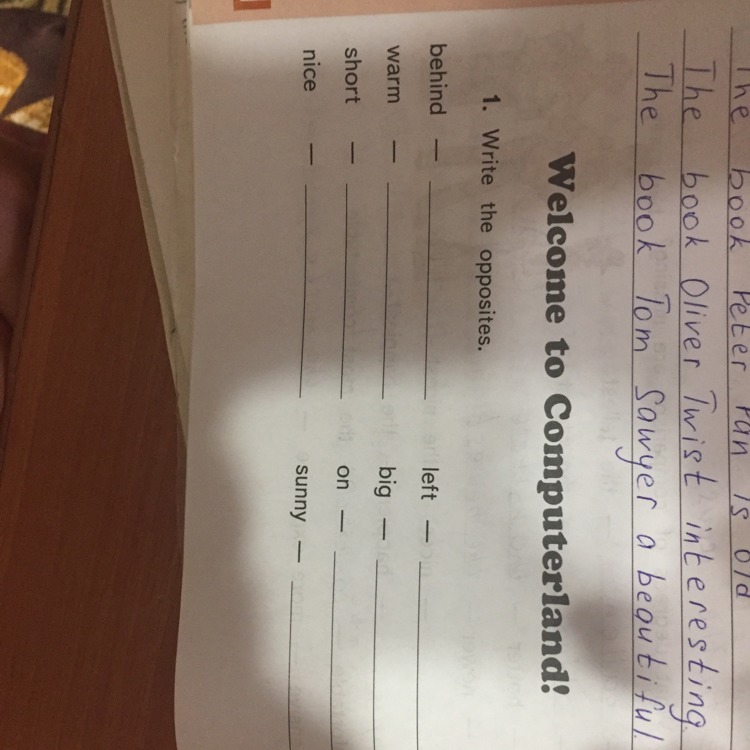 The book Peter Pan is old
The book Oliver Twist interesting.
The book Tom Sawyer a beautiful.
Welcome to Computerland!
1. Write the opposites.
behind — left —
warm — big —
short — on —
nice — sunny —